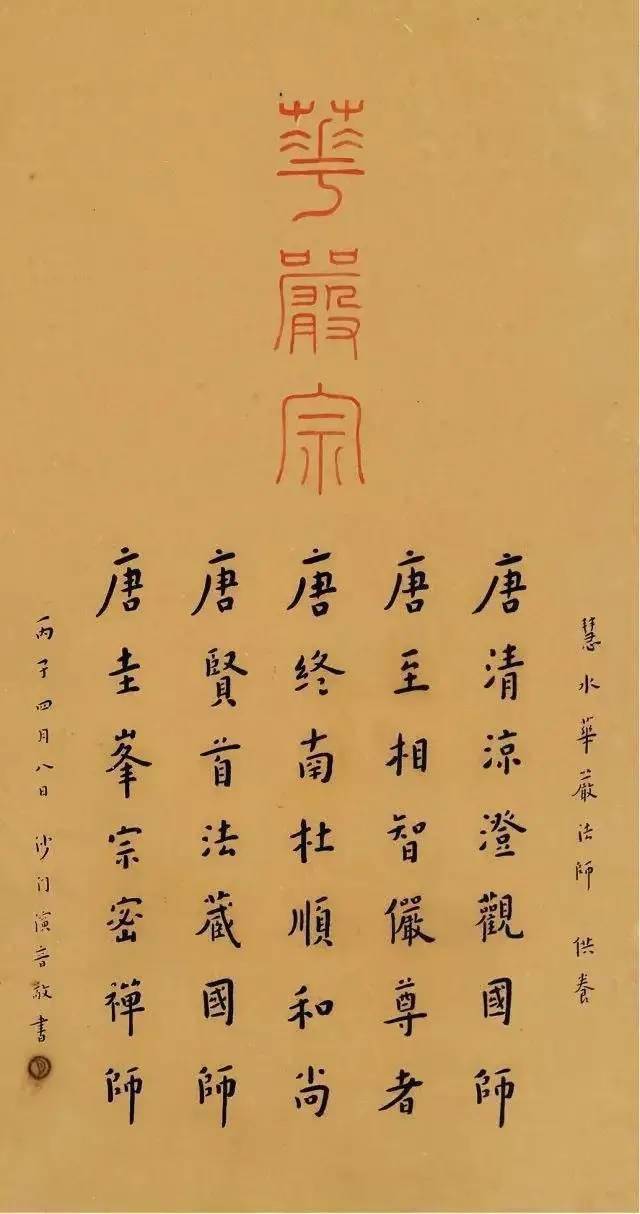 華嚴宗
慧水華嚴法師 供養
唐清涼澄觀國師
唐至相智儼尊者
唐終南杜順和尚
唐賢首法藏國師
唐圭峯宗密禪師
丙子四月八日 沙門演音敬書